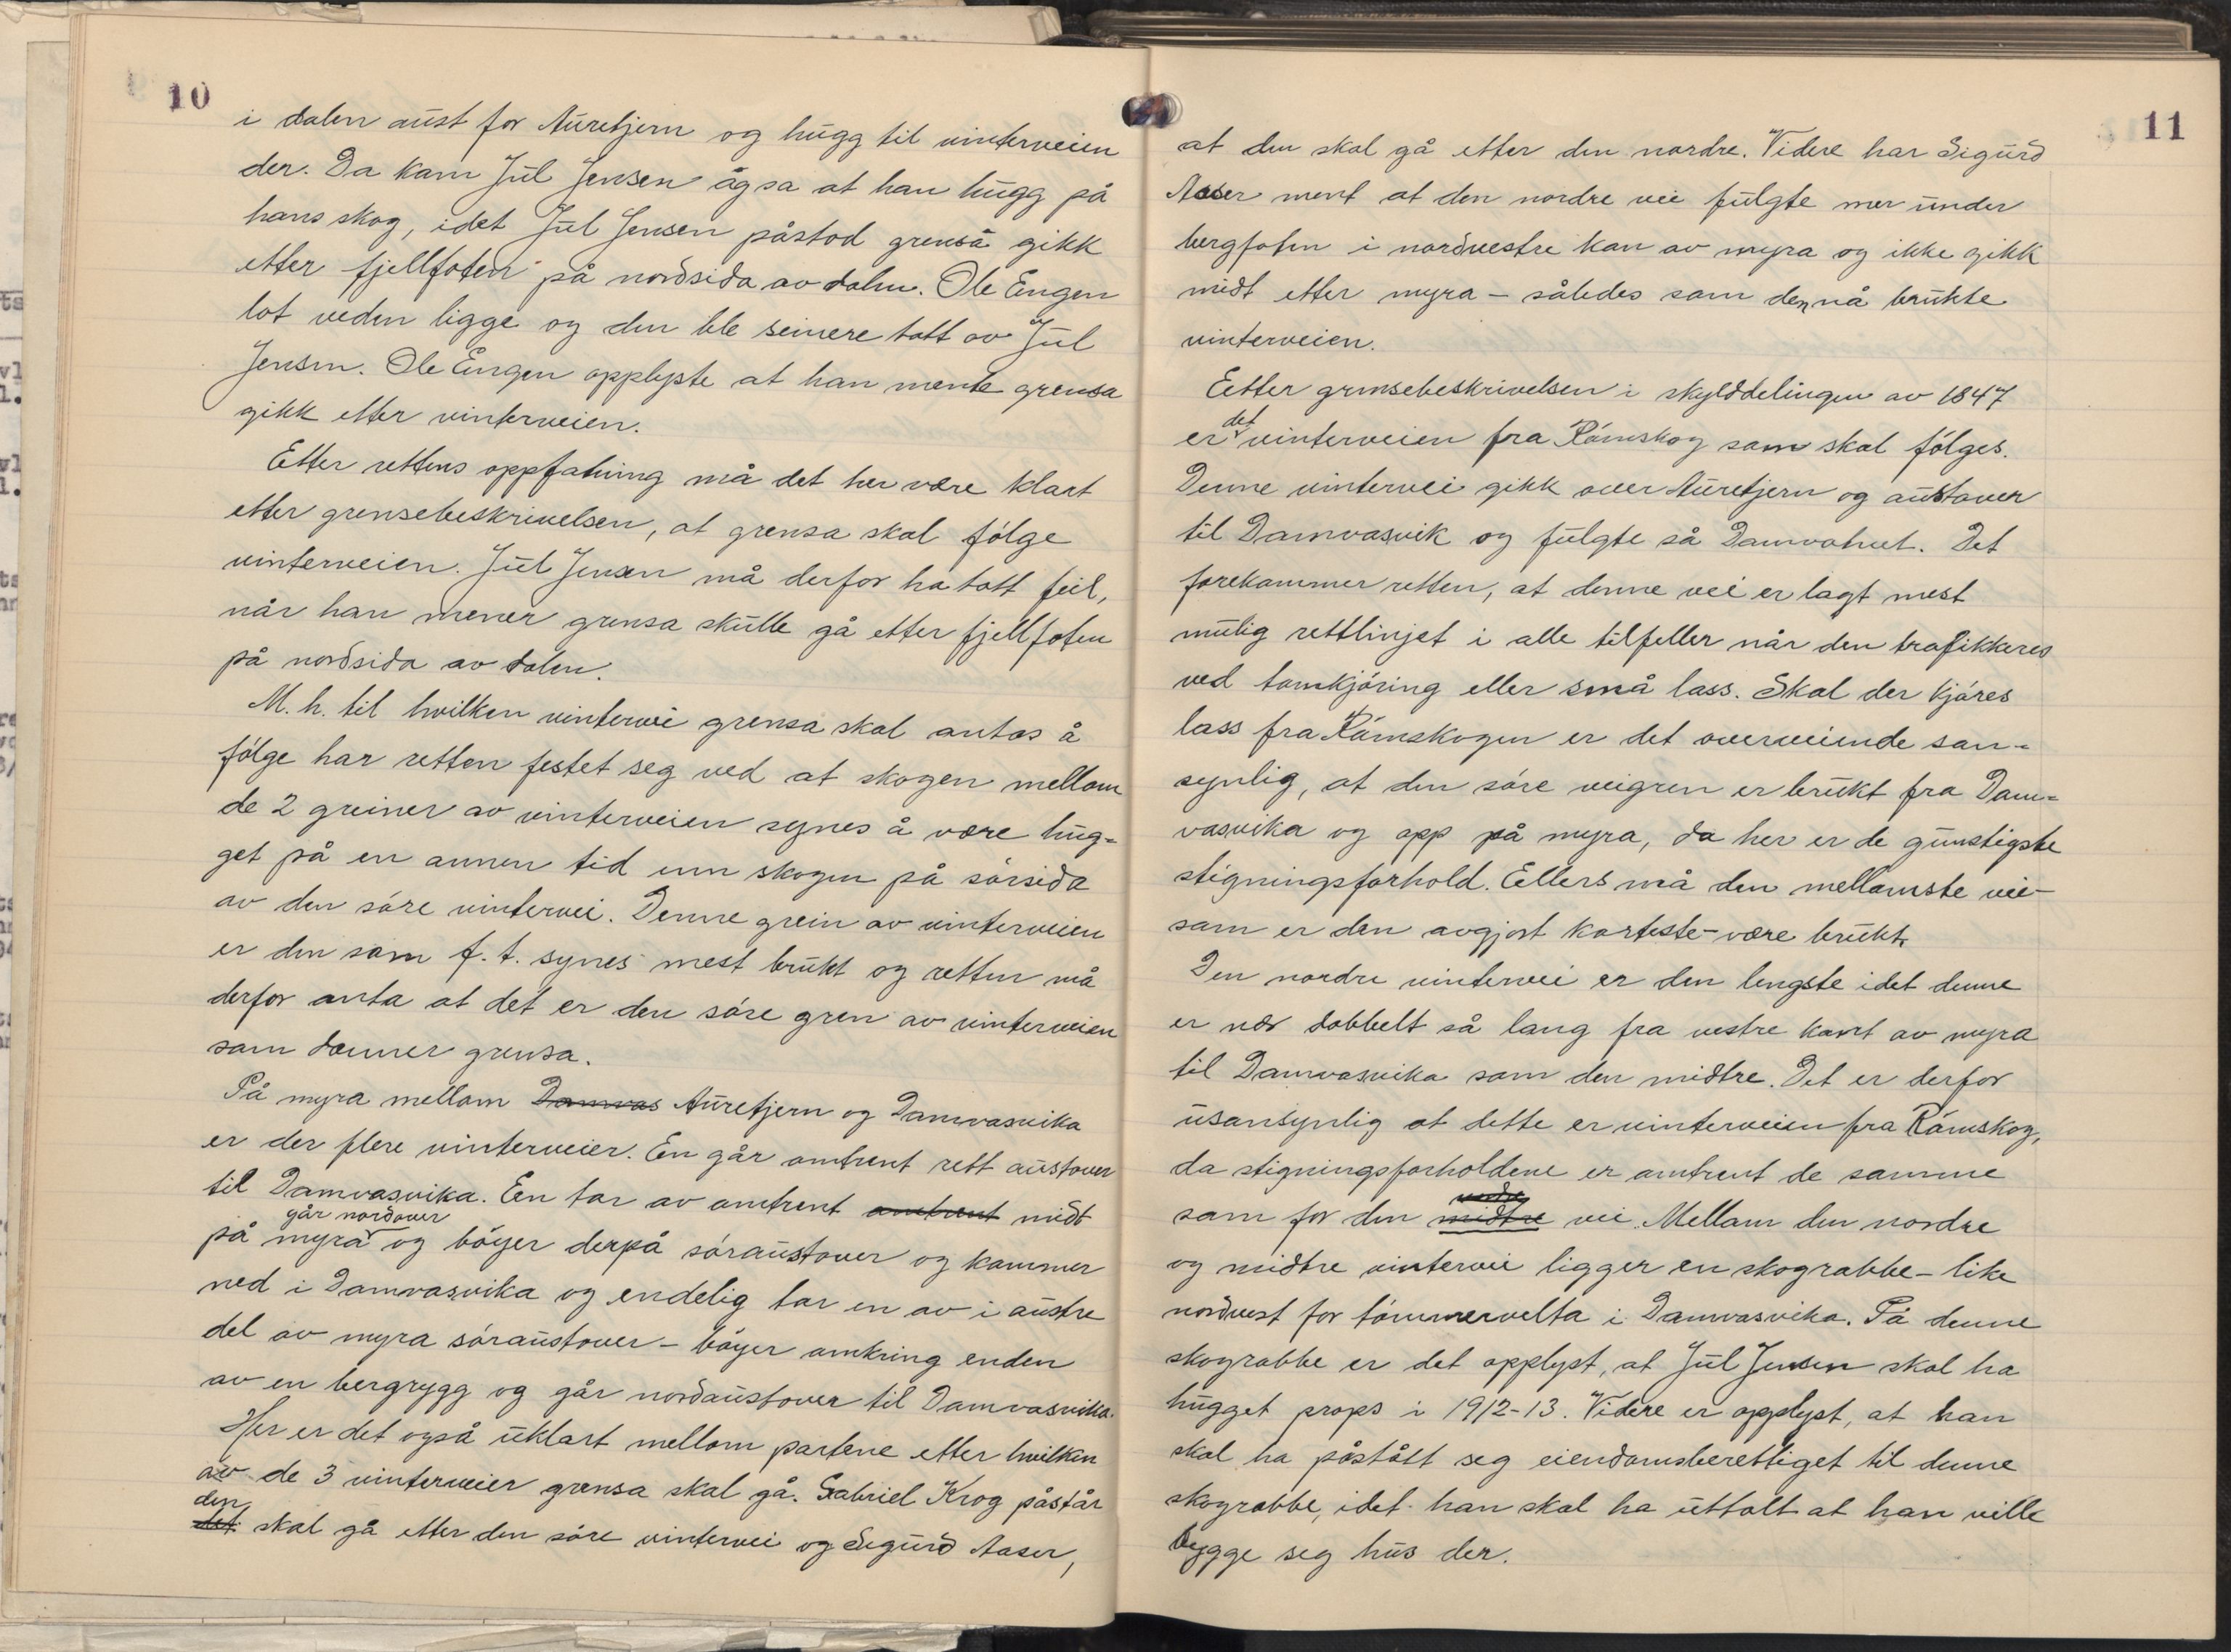 10
i dalen aust for Auretjern og hugg til vinterveien
der. Da kom Jul Jensen og sa at han hugg på
hans skog, idet Jul Jensen påstod grensa gikk
etter fjellfoten på nordsida av dalen. Ole Engen
lot veden ligge og den ble seinere tatt av Jul
Jensen. Ole Engen opplyste at han mente grensa
gikk etter vinterveien.
Etter rettens oppfatning må det her være klart
etter grensebeskrivelsen, at grensa skal følge
vinterveien. Jul Jensen må derfor ha tatt feil,
når han mener grensa skulle gå etter fjellfoten
på nordsida av dalen.
M. h. til hvilken vintervei grensa skal antas å
følge har retten festet seg ved at skogen mellom
de 2 greiner av vinterveien synes å være hug=
get på en annen tid enn skogen på sørsida
av den søre vintervei. Denne grein av vinterveien
er den som f. t. synes mest brukt og retten må
derfor anta at det er den søre gren av vinterveien
som danner grensa.
På myra mellom Damvas Auretjern og Damvasvika
er der flere vinterveier. En går omtrent rett austover
til Damvasvika. Een tar av omtrent omtrent midt
går nordover
på myra og bøyer derpå søraustover og kommer
ned i Damvasvika og endelig tar en av i austre
del av myra søraustover - bøyer omkring enden
av en bergrygg og går nordaustover til Damvasvika.
Her er det også uklart mellom partene etter hvilken
av de 3 vinterveier grensa skal gå. Gabriel Krog påstår
den
det skal gå etter den søre vintervei og Sigurd Aaser,
11
at den skal gå etter den nordre. Videre har Sigurd
Aaser ment at den nordre vei fulgte mer under
bergfoten i nordvestre kan av myra og ikke gikk
midt etter myra - således som den nå brukte
vinterveien.
Eetter grensebeskrivelsen i skylddelingen av 1847
det
er vinterveien fra Rømskog som skal følges.
Denne vintervei gikk over Auretjern og austover
til Damvasvik og fulgte så Damvatnet. Det
forekommer retten, at denne vei er lagt mest
mulig rettlinjet i alle tilfeller når den trafikkeres
ved tomkjøring eller små lass. Skal der kjøres
lass fra Rømskogen er det overveiende san=
synlig, at den søre veigren er brukt fra Dam=
vasvika og opp på myra, da her er de gunstigste
stigningsforhold. Ellers må den mellomste vei-
som er den avgjort korteste - være brukt.
Den nordre vintervei er den lengste idet denne
er nær dobbelt så lang fra vestre kant av myra
til Damvasvika som den midtre. Det er derfor
usansynlig at dette er vinterveien fra Rømskog,
da stigningsforholdene er omtrent de samme
nordre
som for den midtre vei. Mellom den nordre
og midtre vintervei ligger en skograbbe - like
nordvest for tømmervelta i Damvasvika. På denne
skograbbe er det opplyst, at Jul Jensen skal ha
hugget props i 1912-13. Videre er opplyst, at han
skal ha påstått seg eiendomsberettiget til denne
skograbbe, idet han skal ha uttalt at han ville
bygge seg hus der.